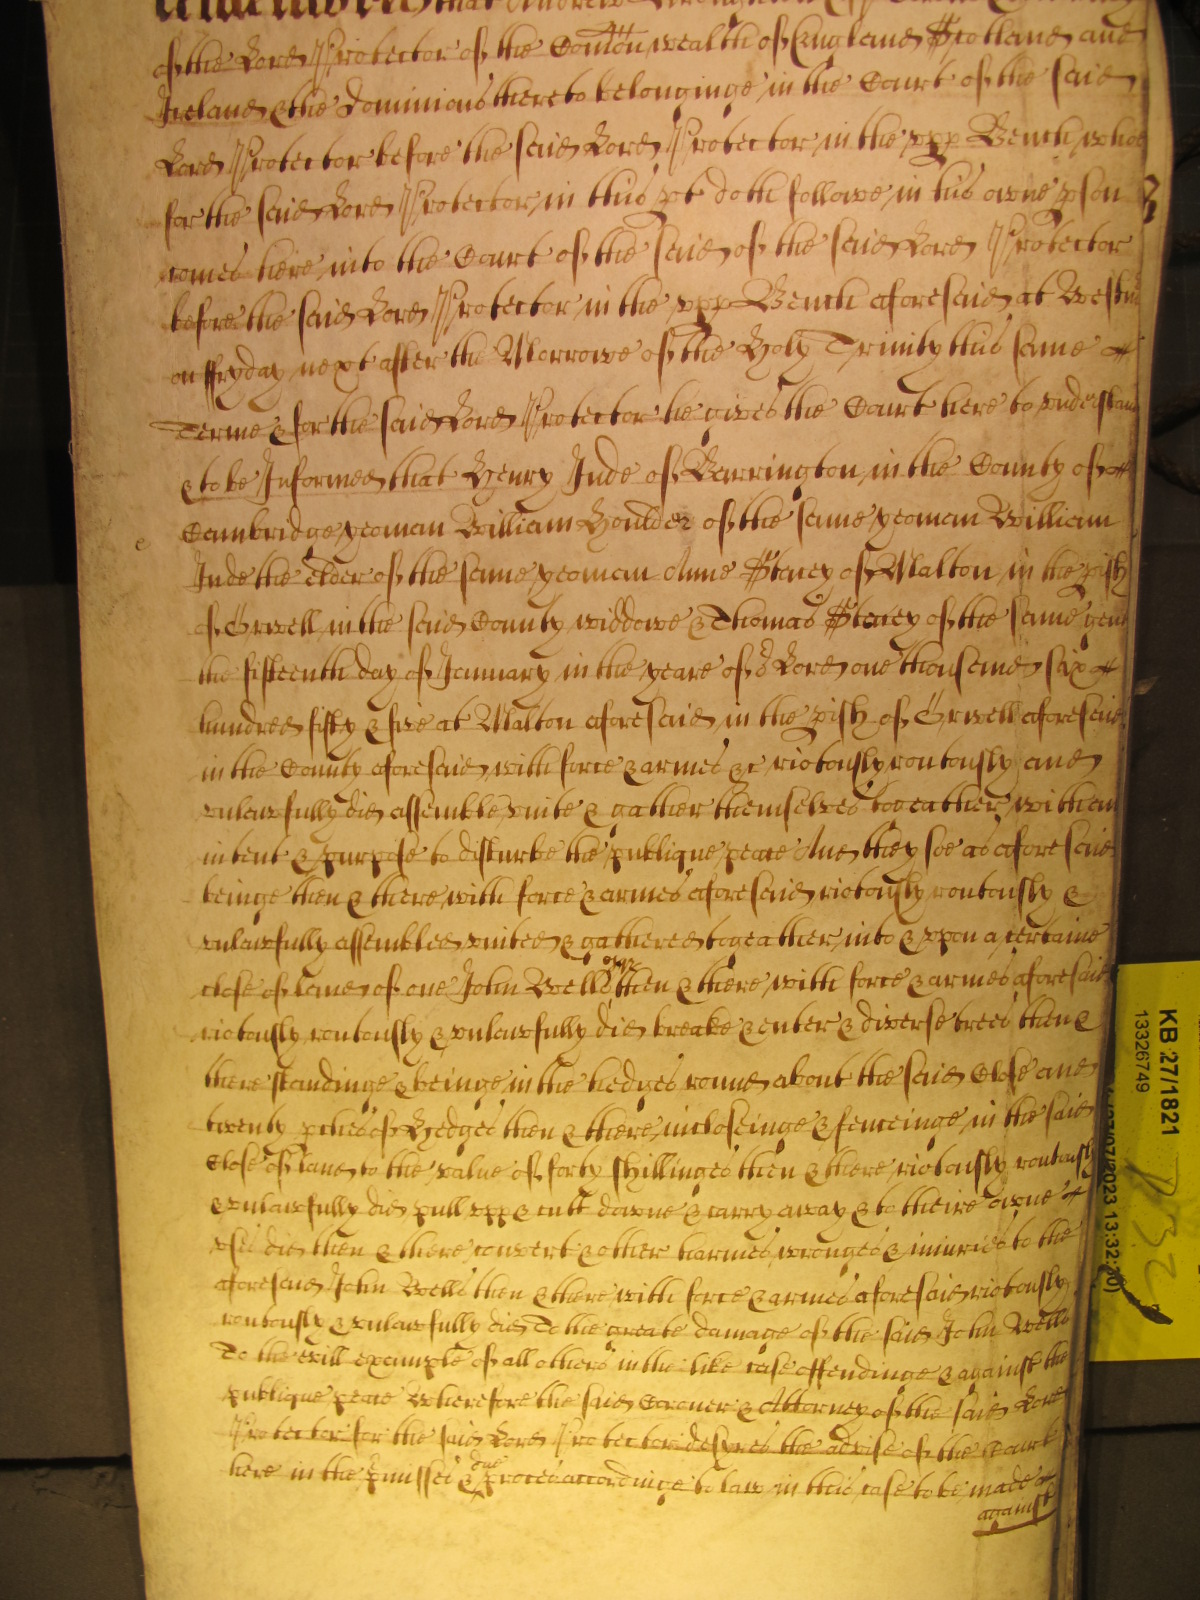 that Andrewe
of the Lord Protector of the Comonwealth of England Scotland and
Ireland & the dominions thereto belonginge in the Court of the said
Lord Protector before the said Lord Protector in the vpp Bench who
for the said Lord Protector in this pt doth followe in his owne pson
comes here into the Court of the said of the said Lord Protector
before the said Lord Protector in the vpp Bench aforesaid at Westm
on ffryday next after the Morrowe of the Holy Trinity this same
Terme & for the said Lord Protector he gives the Court here to vnderstand
& to be Informed that Henry Jude of Barrington in the County of
Cambridge yeoman William Houlder of the same yeoman William
Jude the elder of the same yeoman Anne Stacey of Malton in the pish
of Orwell in the said County widdowe & Thomas Stacey of the same gent
the fifteenth day of January in the yeare of or Lord one thousand six
hundred fifty & five at Malton aforesaid in the pish of Orwell aforesaid
in the County aforesaid with force & armes &c riotously routously and
vnlawfully did assemble vnite & gather themselves togeather with an
intent & purpose to disturbe the publique peace And they soe as aforesaid
beinge then & there with force & armes aforesaid riotously routously &
vnlawfully assembled vnited & gathered togeather into & vpon a certaine
close of land of one John Wells then & there with force & armes aforesaid
riotously routously & vnlawfully did breake & enter & diverse trees then &
there standinge & beinge in the hedges round about the said Close and
twenty pches of Hedges then & there incloseinge & fenceinge in the said
Close of land to the value of forty shillinges then & there riotously routously
& vnlawfully did pull vpp & cutt downe & carry away & to theire owne
vses did then & there convert & other harmes wronges & iniuries to the
aforesaid John Wells then & there with force & armes aforesaid riotously
routously & vnlawfully did To the greate damage of the said John Wells
To the evill example of all others in the like case offendinge & against the
publique peace Wherefore the said Coroner & Attorney of the said Lord
Protector for the said Lord Protector desyres the advise of the Court
here in the pmisses & due proces accordinge to law in this case to be made
against
KB 27/1821
13326749
/07/2023 13:32:20)